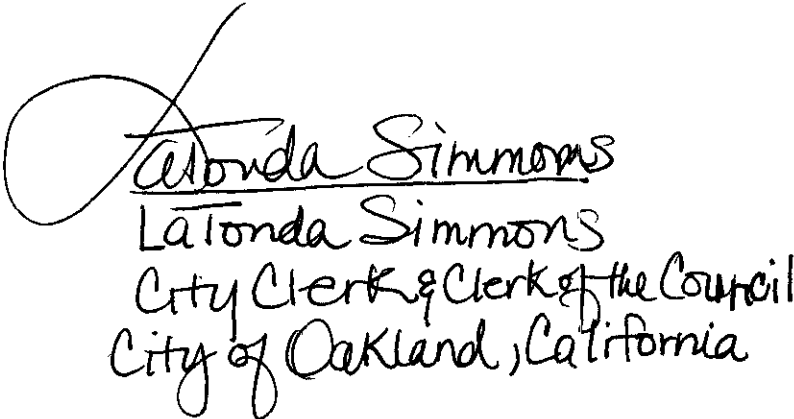 LaTonda Simmons
LaTonda Simmons
City Clerk & Clerk of the Council
City of Oakland, California